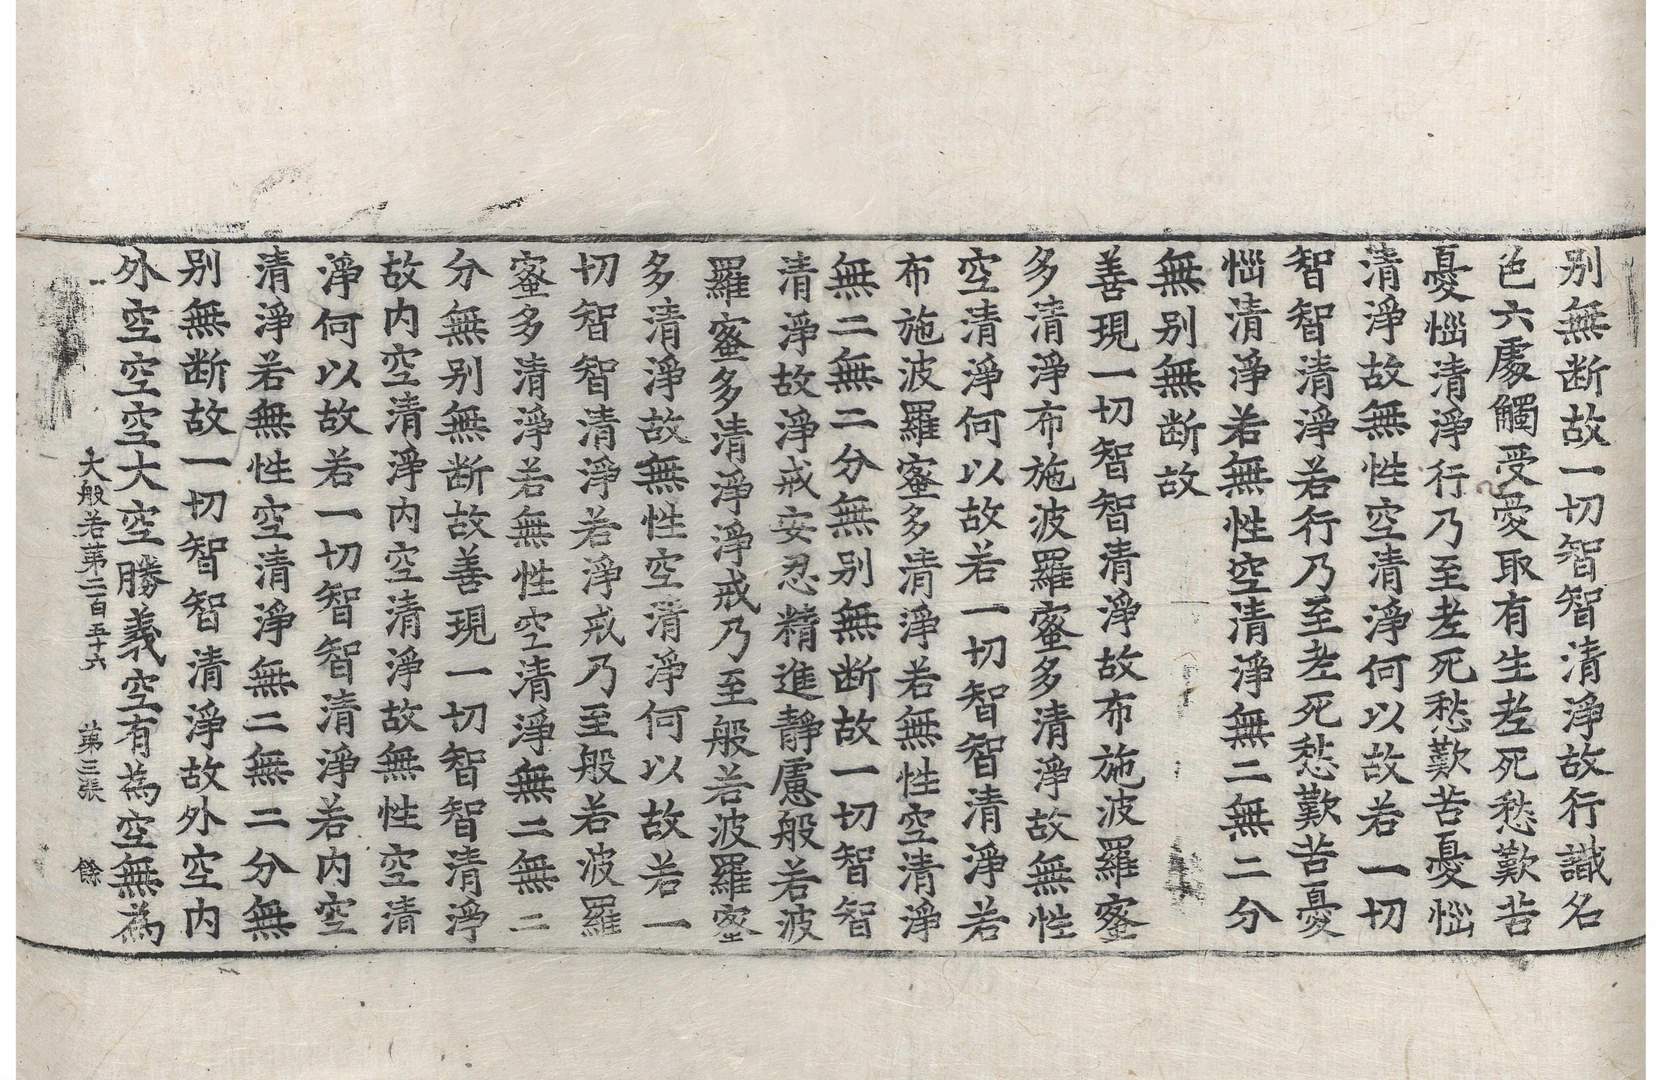 别無断故一切智智清淨故行識名
色六處觸受愛取有生老死愁歎苦
憂惱清淨行乃至老死愁歎苦憂惱
清淨故無性空清淨何以故若一切
智智清淨若行乃至老死愁歎苦憂
惱清淨若無性空清淨無二無二分
無别無断故
善現一切智智清淨故布施波羅蜜
多清淨布施波羅蜜多清淨故無性
空清淨何以故若一切智智清淨若
布施波羅蜜多清淨若無性空清淨
無二無二分無别無断故一切智智
清淨故淨戒安忍精進靜慮般若波
羅蜜多清淨淨戒乃至般若波羅蜜
多清淨故無性空清淨何以故若一
切智智清淨若淨戒乃至般若波羅
蜜多清淨若無性空清淨無二無二
分無别無断故善現一切智智清淨
故内空清淨内空清淨故無性空清
淨何以故若一切智智清淨若内空
清淨若無性空清淨無二無二分無
别無断故一切智智清淨故外空内
外空空空大空勝義空有為空無為
大般若第二百五十六 第三張 餘